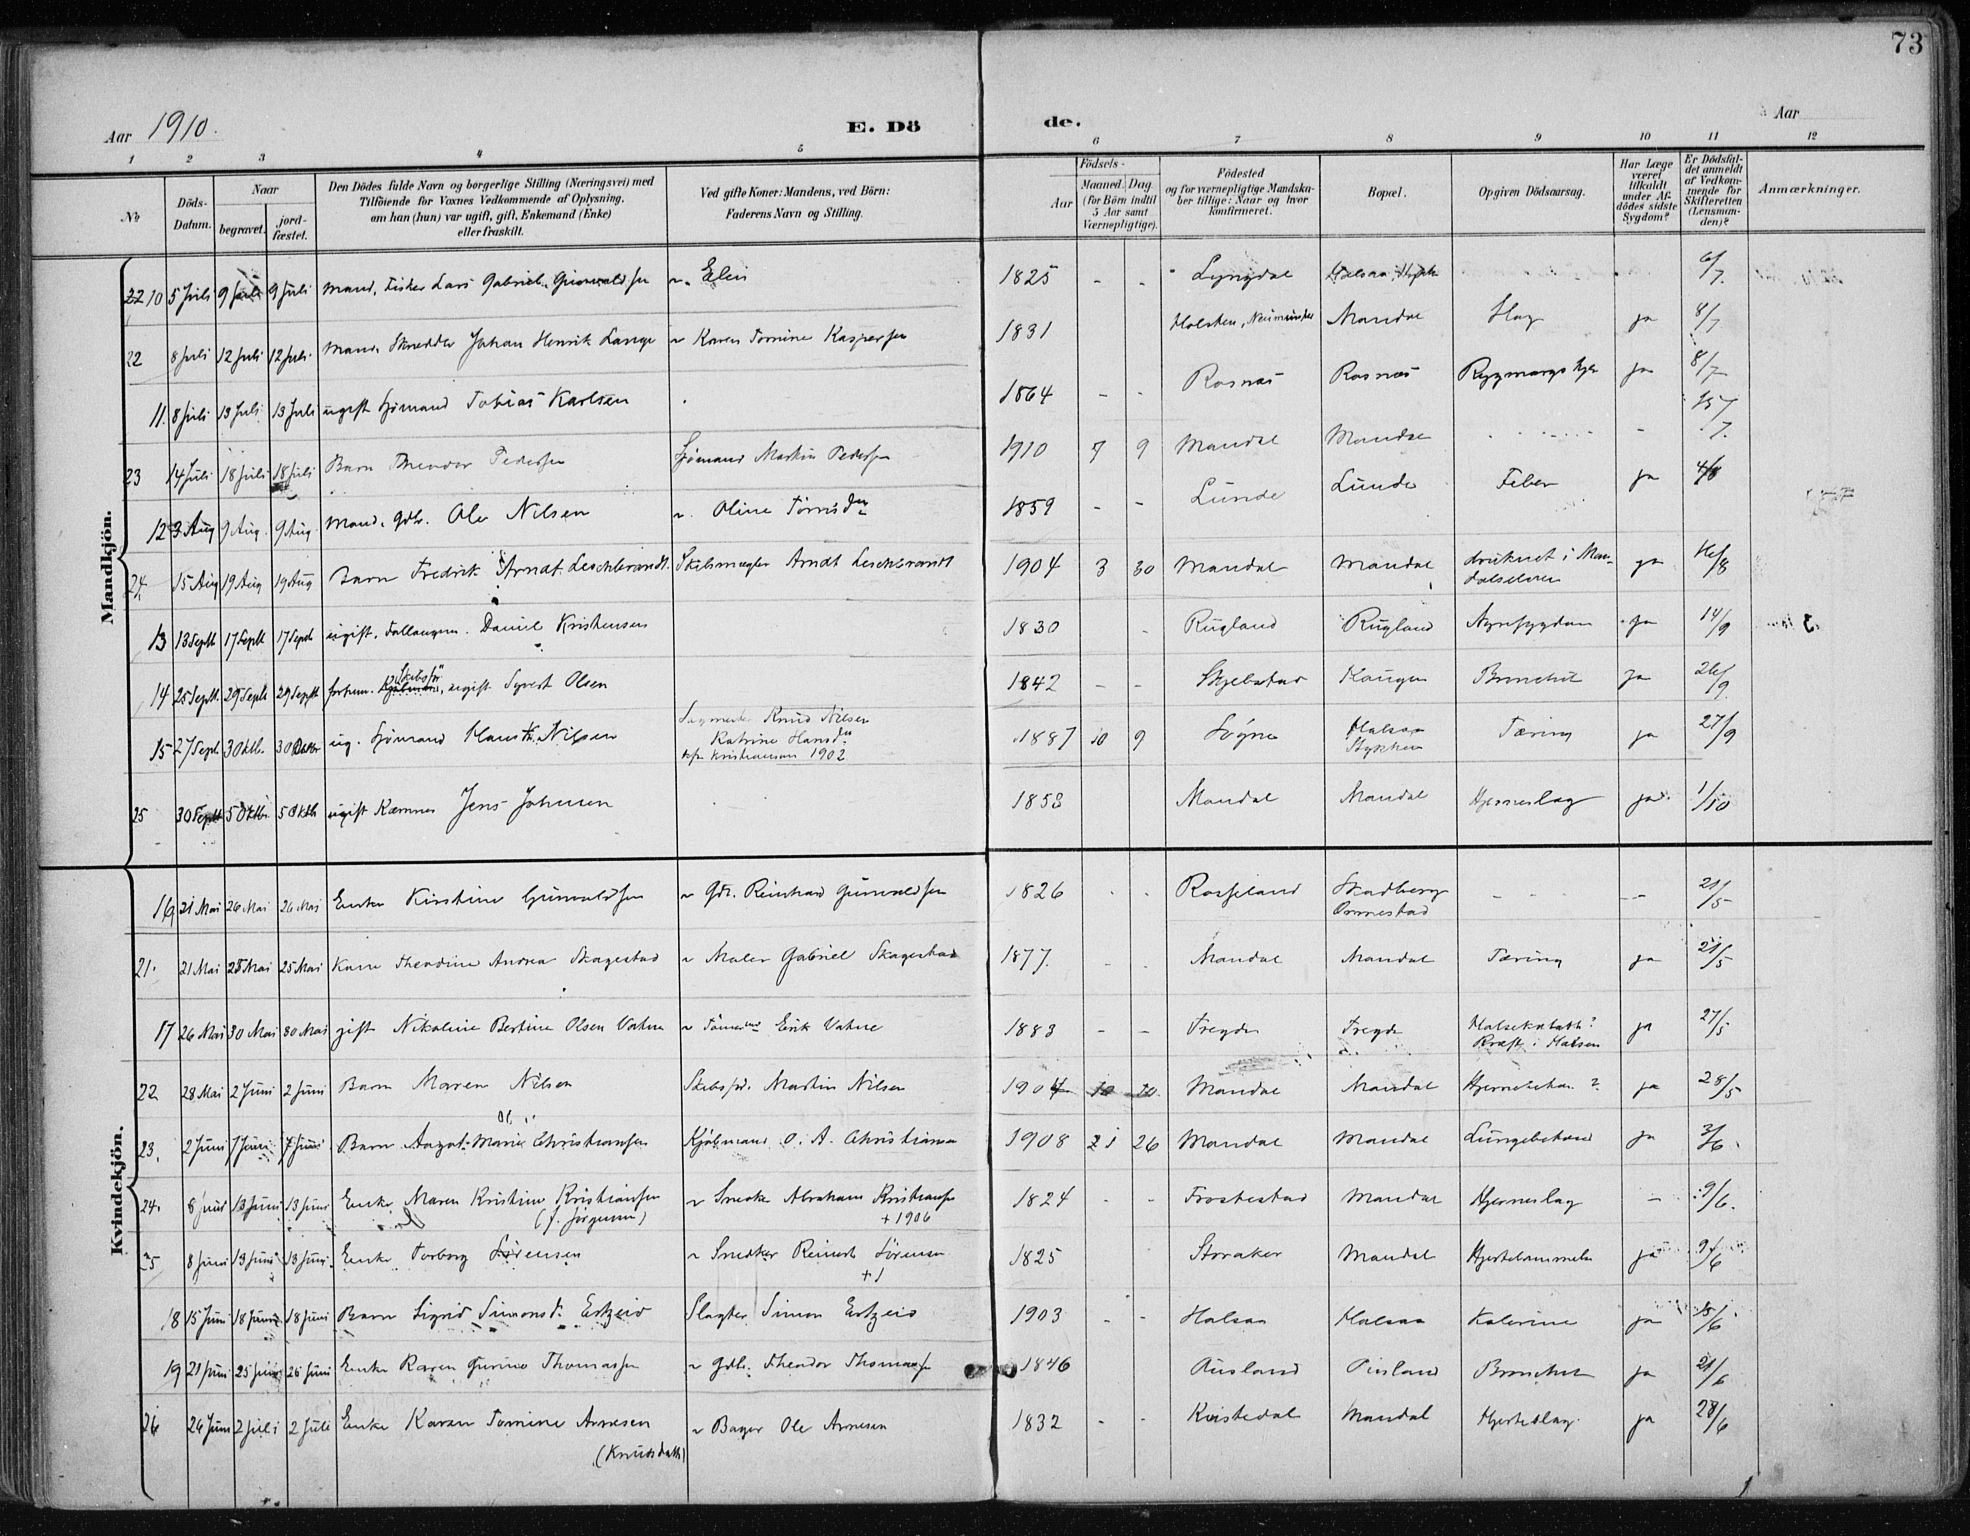 73
Aar 1910.
E. Dö
de.
Aar
1 2 3 4 5 6 7 8 9 10 11 12
No
Döds-
Datum.
Naar
begravet.
jord-
fæstet.
Den Dödes fulde Navn og borgerlige Stilling (Næringsvei) med
Tilföiende for Voxnes Vedkommende af Oplysning,
om han (hun) var ugift, gift, Enkemand (Enke)
eller fraskilt.
Ved gifte Koner: Mandens, ved Börn:
Faderens Navn og Stilling.
Födsels-
Aar
Maaned. Dag
(for Börn indtil
5 Aar samt
Værnepligtige).
Födested
og for værnepligtige Mandska-
ber tillige: Naar og hvor
konfirmeret.
Bopæl.
Opgiven Dödsaarsag.
Har Læge
været
tilkaldt
under Af-
dödes sidste
Sygdom?
Er Dödsfal-
det anmeldt
af Vedkom-
mende for
Skifteretten
(Lensman-
den)?
Anmærkninger.
Mandkjön.
10 5 Juli 9 Juli 9 Juli Mand, Fisker Lars Gabriel 1825 - - Lyngdal 6/7.
22 8 Juli 12 Juli 12 Juli Mand, Skredder Johan Henrik Lange Karen Tomine Kaspersen 1831 Holsten, Mandal Slag ja 8/7
11. 8 Juli 13 Juli 13 Juli ugift Sjømand Tobias Karlsen 1864 - - Rosnæs Rosnæs ja 8/7
23 14 Juli 18 Juli 18 Juli Barn Theodor Pedersen Sjømand Martin Pedersen 1910 7 9 Mandal Mandal - 15/7.
12 3 Aug 9 Aug. 9 Aug Mand, Gdbr. Ole Nilsen Oline 1859 - - Lunde Lunde Feber ja 4/8
24. 15 Aug 19 Aug 19 Aug Barn Fredrik Arndt Leschbrandt. Skibsmægler Arndt Leschbrandt 1904 3 30 Mandal Mandal druknet i Man-
dalselven ja 16/8
13 13 Septb 17 Septb 17 Septb ugift. Daniel Kristensen 1830 - Rugland Rugland Nyresygdom ja 14/9
14 25 Septb. 29 Septb 29 Septb forhen. Skibsfør, ugift Syvert Olsen 1842 - - Skjebstad Haugen Bronchit ja 26/9
15 27 Septb 3 Oktb. 3 Oktbr ug. Sjømand Hans K. Nilsen Knud Nilsen
Katrine Hansdtr
kfr. Kristiansand 1902 1887 10 9 Søgne Halsaa
Stykken Tæring ja 27/9
25 30 Septb 5 Oktb. 5 Oktb ugift Kæmner Jens Johnsen 1858 Mandal Mandal Hjerneslag ja. 1/10
Kvindekjön.
16 21 Mai 26 Mai 26 Mai Enke Kirstine Gunvaldsen Gdr. Reinhard Gunvaldsen 1826 - - Rosseland Skadberg
Ormestad - - - 21/5
21. 21 Mai 25 Mai 25 Mai Kone Theodine Andrea Skagestad Maler Gabriel Skagestad 1877. - - Mandal Mandal Tæring ja 21/5
17 26 Mai 30 Mai 30 Mai gift Nikoline Bertine Olsen Vatne Tømmermd Erik Vatne 1883 - - Tregde Tregde Halsekatarh?
Kræft i Halsen ja 27/5
22 28 Mai 2 Juni 2 Juni Barn Maren Nilsen Skibsfr. Martin Nilsen 1904 10 20. Mandal Mandal Hjernebetæn. ? ja 28/5
23. 2 Juni 7 Juni 7 Juni Barn Marie Christiansen Kjøbmand O. A. Christiansen 1908 21 26 Mandal Mandal Lungebetænd ja 3/6.
24. 8 Juni 13 Juni 13 Juni Enke Maren Kristine Kristiansen
(f. Jørgensen) Snedker Abraham Kristiansen
+ 1906 1824 - - Frostestad Mandal Hjerneslag - 9/6.
25 8 Juni 13 Juni 13 Juni. Enke Torborg Sørensen Snedker Reinert Sørensen
+ 1825 Storaker Mandal Hjertelammelse ja 9/6
18 15 Juni 18 Juni 18 Juni Barn Sigrid Simonsdt. Ertzeid Slagter Simon Ertzeid 1903 - - Halsaa Halsaa Kolerine ja 15/6
19 21 Juni 25 Juni 25 Juni Enke Karen Gurine Thomassen Gdbr. Theodor Thomassen 1846 Ousland Ousland Bronchit ja 21/6
26 26 Juni 2 Juli 2 Juli Enke Karen Tomine Arnesen
(Knudsdatter) Bager Ole Arnesen 1832 - - Kvistedal Mandal Hjerteslag ja 28/6